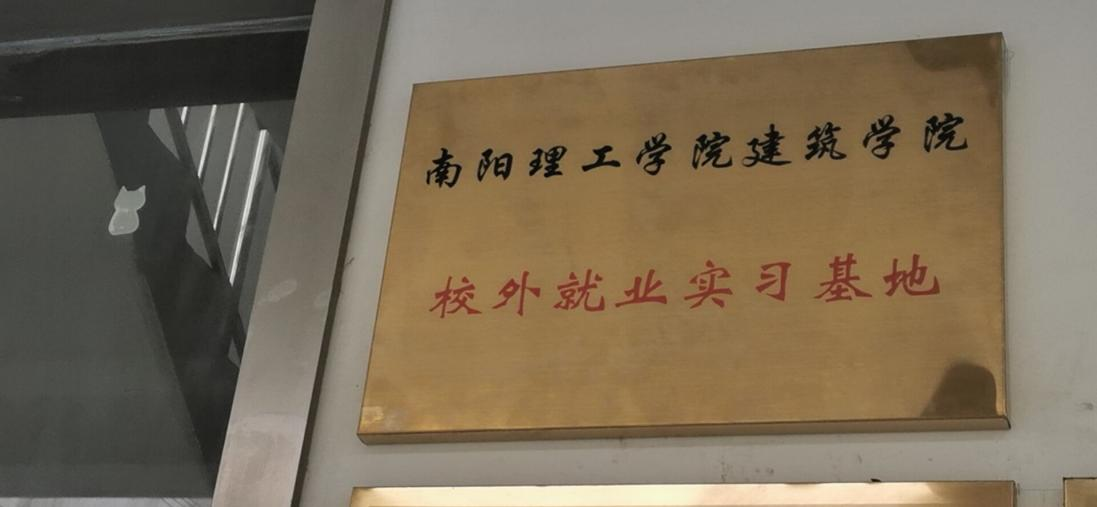 南阳理工学院建筑学院
校外就业实习基地